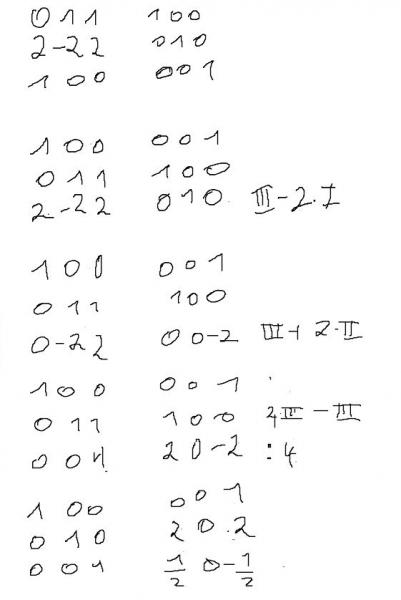 0 1 1 1 0 0
2 -2 2 0 1 0
1 0 0 0 0 1
1 0 0 0 0 1
0 1 1 1 0 0
2 -2 2 0 1 0 III - 2·I
1 0 0 0 0 1
0 1 1 1 0 0
0 -2 2 0 0 -2 III + 2·II
1 0 0 0 0 1
0 1 1 1 0 0 4II - III
0 0 4 2 0 -2 : 4
1 0 0 0 0 1
0 1 0 2 0 2
0 0 1 1/2 0 -1/2